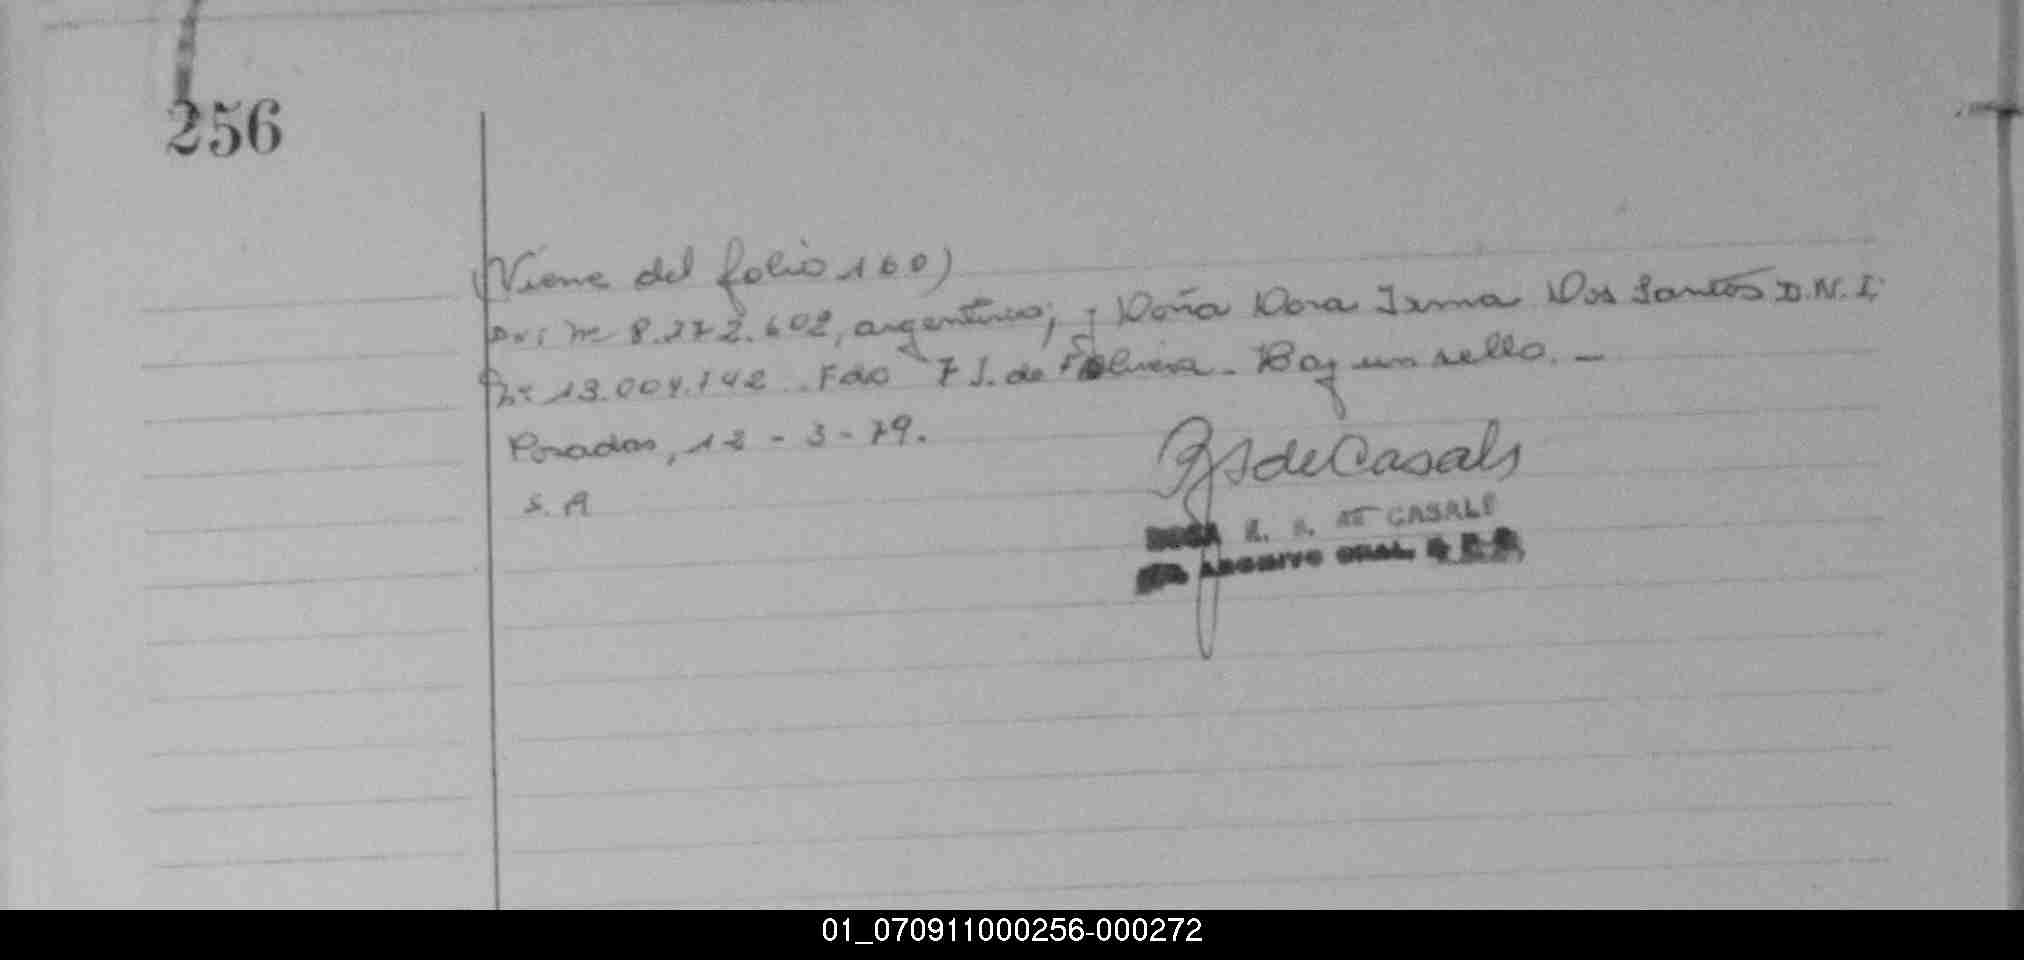 256
(Viene del folio 160)
DNI Nº 8.272.602, argentino; y Doña Dora Irma Dos Santos D.N.I.
Nº 13.004.142. Fdo J. de Olivera. Hay un sello. —
Posadas, 12 - 3 - 79.
S. A
de Casals
DE CASALS
ARCHIVO GRAL.
01_070911000256-000272